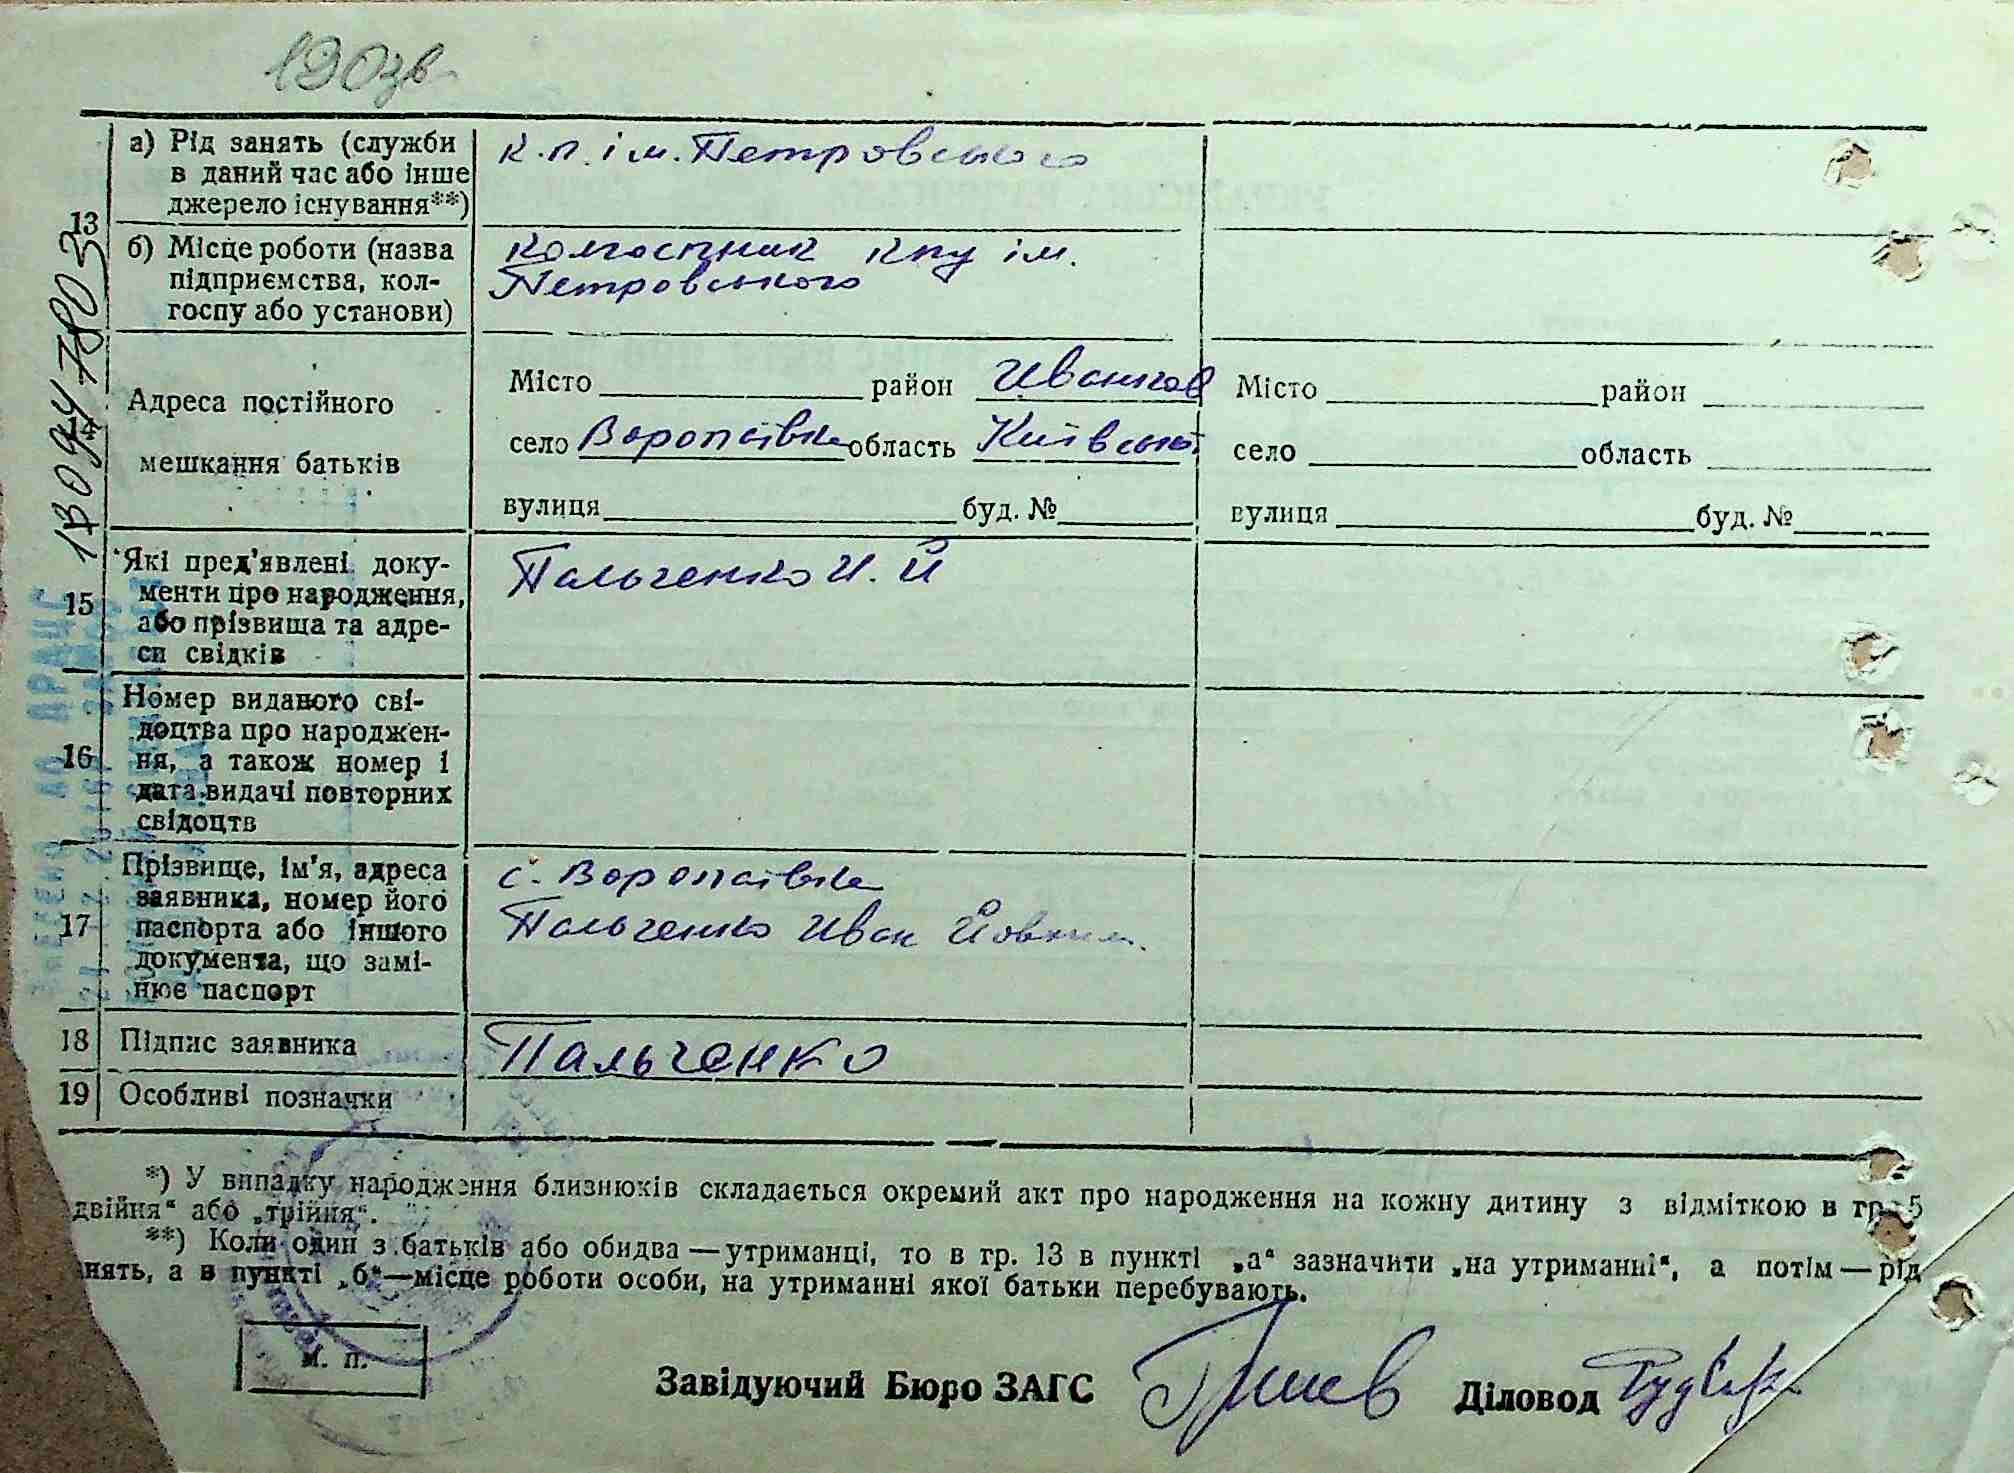 190зв
13 а) Рід занять (служби к.п. ім. Петровського
в даний час або інше
джерело існування**)
б) Місце роботи (назва колгоспник кпу ім.
підприємства, кол- Петровського
госпу або установи)
Адреса постійного
мешкання батьків
Місто район Иванков Місто район
село Воропаївка область Київська село область
вулиця буд. № вулиця буд. №
15 Які пред'явлені доку- Пальченко И. Й
менти про народження,
або прізвища та адре-
си свідків
16 Номер виданого сві-
доцтва про народжен-
ня, а також номер і
дата видачі повторних
свідоцтв
17 Прізвище, ім'я, адреса с. Воропаївка
заявника, номер його Пальченко Иван
паспорта або іншого
документа, що замі-
нює паспорт
18 Підпис заявника Пальченко
19 Особливі позначки
*) У випадку народження близнюків складається окремий акт про народження на кожну дитину з відміткою в гр. 5
двійня“ або „трійня“.
**) Коли один з батьків або обидва — утриманці, то в гр. 13 в пункті „а“ зазначити „на утриманні“, а потім — рід
нять, а в пункті „б“—місце роботи особи, на утриманні якої батьки перебувають.
м. п.
Завідуючий Бюро ЗАГС Діловод